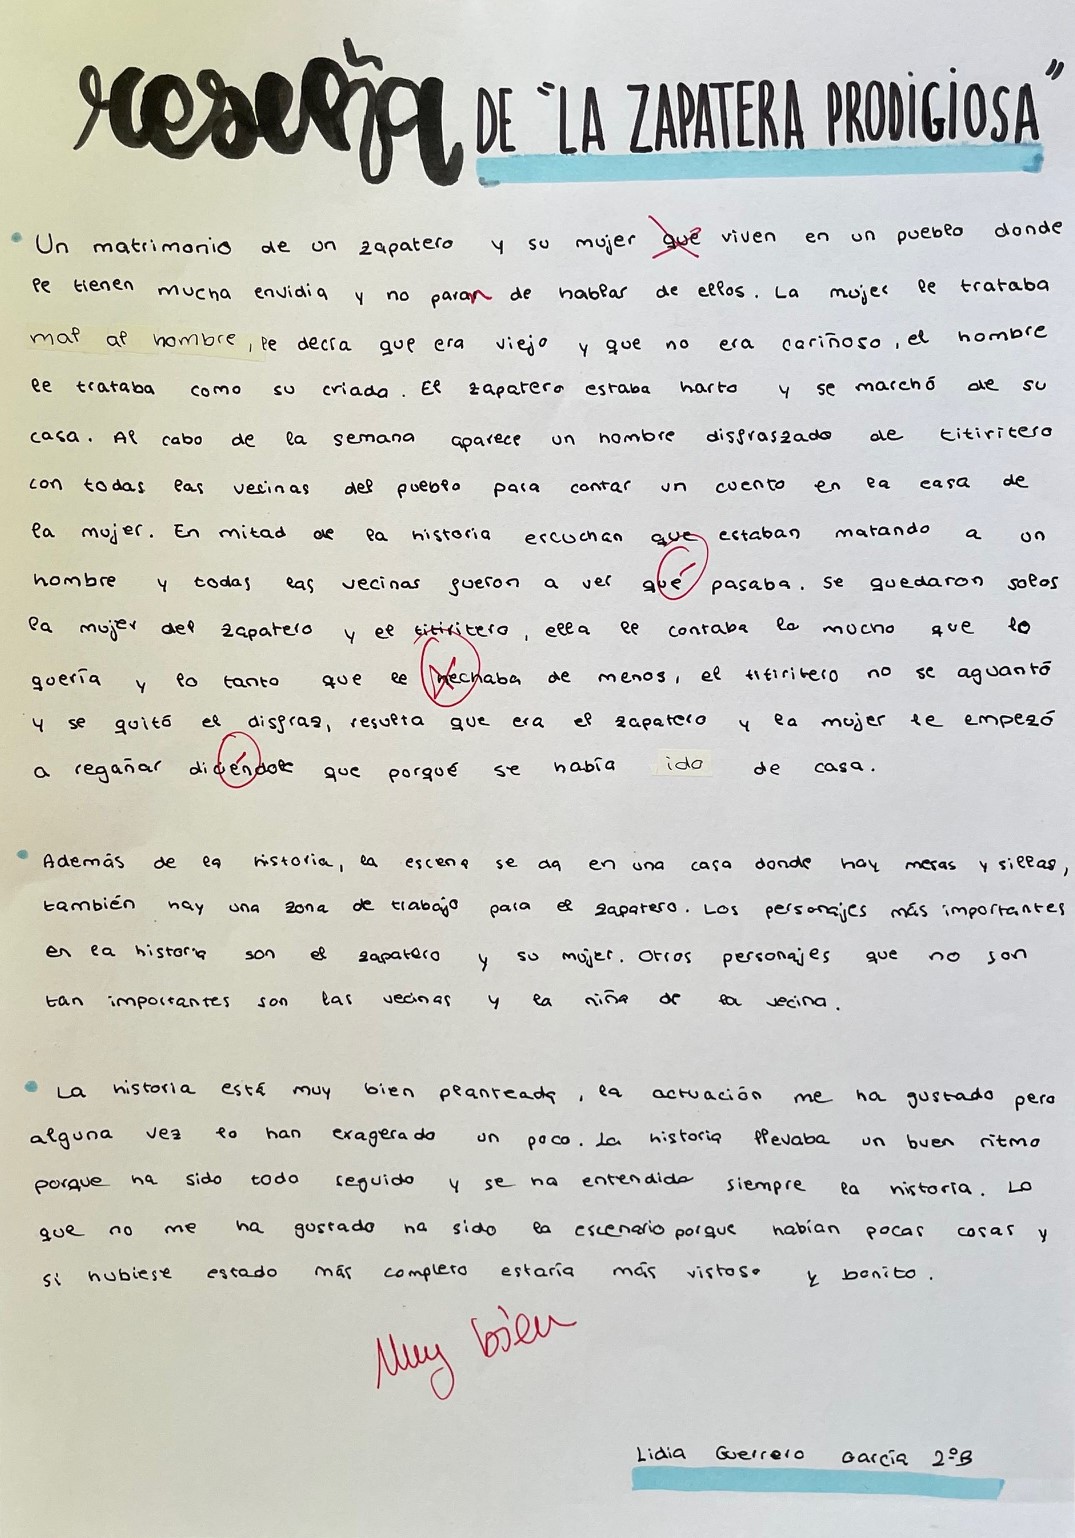 reseña DE "LA ZAPATERA PRODIGIOSA"
Un matrimonio de un zapatero y su mujer que viven en un pueblo donde
le tienen mucha envidia y no paran de hablar de ellos. La mujer le trataba
mal al hombre, le decía que era viejo y que no era cariñoso, el hombre
le trataba como su criada. El zapatero estaba harto y se marchó de su
casa. Al cabo de la semana aparece un hombre disfraszado de titiritero
con todas las vecinas del pueblo para contar un cuento en la casa de
la mujer. En mitad de la historia escuchan que estaban matando a un
hombre y todas las vecinas fueron a ver qué pasaba. Se quedaron solos
la mujer del zapatero y el titiritero, ella le contaba lo mucho que lo
quería y lo tanto que le hechaba de menos, el titiritero no se aguantó
y se quitó el disfraz, resulta que era el zapatero y la mujer le empezó
a regañar diciéndole que porqué se había ido de casa.
Además de la historia, la escena se da en una casa donde hay mesas y sillas,
también hay una zona de trabajo para el zapatero. Los personajes más importantes
en la historia son el zapatero y su mujer. Otros personajes que no son
tan importantes son las vecinas y la niña de la vecina.
La historia está muy bien planteada, la actuación me ha gustado pero
alguna vez lo han exagerado un poco. La historia llevaba un buen ritmo
porque ha sido todo seguido y se ha entendido siempre la historia. Lo
que no me ha gustado ha sido la escenario porque habían pocas cosas y
si hubiese estado más completo estaría más vistoso y bonito.
Muy bien
Lidia Guerrero García 2ºB